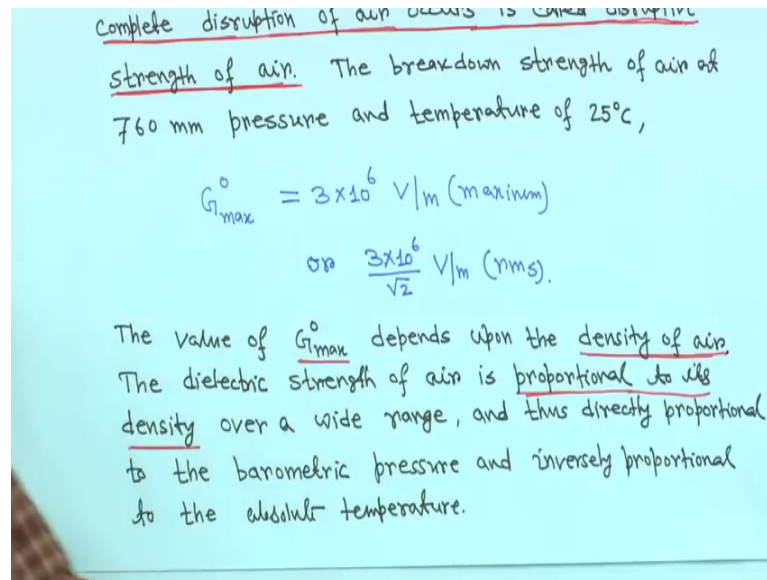 Complete disruption of air occurs is called disruptive
strength of air. The breakdown strength of air at
760 mm pressure and temperature of 25°C,
G°max = 3×10⁶ V/m (maximum)
or 3×10⁶/√2 V/m (rms).
The value of G°max depends upon the density of air.
The dielectric strength of air is proportional to its
density over a wide range, and thus directly proportional
to the barometric pressure and inversely proportional
to the absolute temperature.